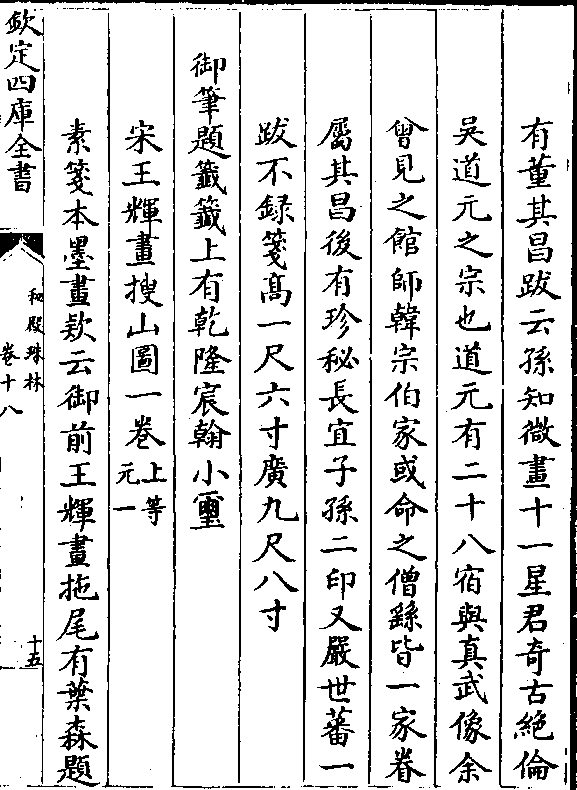 有董其昌跋云孫知微畫十一星君奇古絕倫
吳道元之宗也道元有二十八宿與真武像余
曾見之館師韓宗伯家或命之僧繇皆一家眷
屬其昌後有珍秘長宜子孫二印又嚴世蕃一
跋不録箋髙一尺六寸廣九尺八寸
御筆題籤籤上有乾隆宸翰小璽
宋王輝畫搜山圖一卷上等元一
素箋本墨畫款云御前王輝畫拖尾有葉森題
欽定四庫全書
秘殿珠林
卷十八
十五